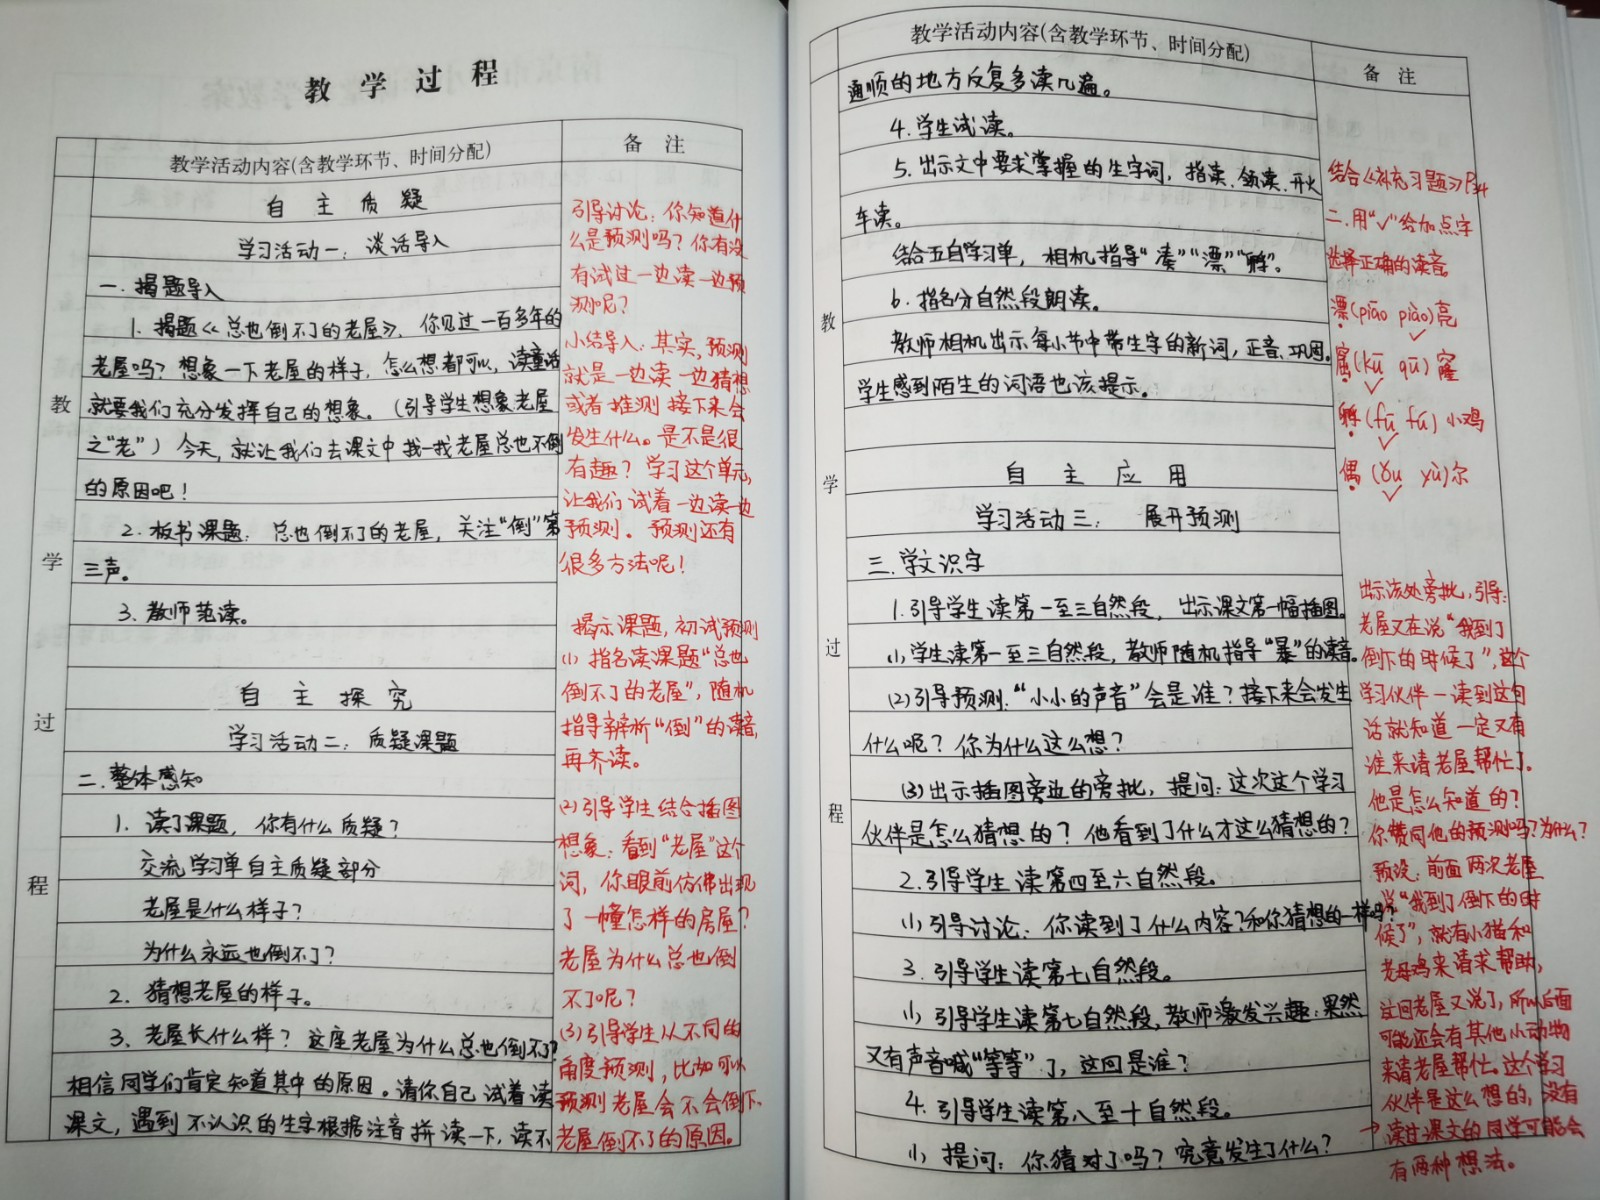 教学过程
教学活动内容(含教学环节、时间分配)
备 注
教学过程
自主质疑
学习活动一：谈话导入
一.揭题导入
1. 揭题《总也倒不了的老屋》，你见过一百多年的
老屋吗？想象一下老屋的样子，怎么想都可以，读童话
就要我们充分发挥自己的想象。（引导学生想象老屋
之“老”）今天，就让我们去课文中找一找老屋总也不倒
的原因吧！
2. 板书课题：总也倒不了的老屋，关注“倒”第
三声。
3. 教师范读。
自主探究
学习活动二：质疑课题
二.整体感知
1. 读了课题，你有什么质疑？
交流学习单自主质疑部分
老屋是什么样子？
为什么永远也倒不了？
2. 猜想老屋的样子。
3、老屋长什么样？这座老屋为什么总也倒不了？
相信同学们肯定知道其中的原因。请你自己试着读
课文，遇到不认识的生字根据注音拼读一下，读不
引导讨论：你知道什
么是预测吗？你有没
有试过一边读一边预
测呢？
小结导入：其实，预测
就是一边读一边猜想
或者推测接下来会
发生什么。是不是很
有趣？学习这个单元，
让我们试着一边读一边
预测。预测还有
很多方法呢！
揭示课题，初试预测
(1) 指名读课题“总也
倒不了的老屋”，随机
指导辨析“倒”的读音，
再齐读。
(2)引导学生结合插图
想象：看到“老屋”这个
词，你眼前仿佛出现
了一幢怎样的房屋？
老屋为什么总也倒
不了呢？
(3)引导学生从不同的
角度预测，比如可以
预测老屋会不会倒下、
老屋倒不了的原因。
教学活动内容(含教学环节、时间分配)
备 注
教学过程
通顺的地方反复多读几遍。
4.学生试读。
5. 出示文中要求掌握的生字词，指读、领读、开火
车读。
结合五自学习单，相机指导“凑”“漂”“孵”。
6. 指名分自然段朗读。
教师相机出示每小节中带生字的新词，正音、巩固。
学生感到陌生的词语也该提示。
自主应用
学习活动三：展开预测
三.学文识字
1.引导学生读第一至三自然段，出示课文第一幅插图。
(1)学生读第一至三自然段，教师随机指导“暴”的读音。
(2)引导预测：“小小的声音”会是谁？接下来会发生
什么呢？你为什么这么想？
(3)出示插图旁边的旁批，提问：这次这个学习
伙伴是怎么猜想的？他看到了什么才这么猜想的？
2.引导学生读第四至六自然段。
(1)引导讨论：你读到了什么内容？和你猜想的一样吗？
3.引导学生读第七自然段。
(1)引导学生读第七自然段，教师激发兴趣：果然
又有声音喊“等等”了，这回是谁？
4.引导学生读第八至十自然段。
(1)提问：你猜对了吗？究竟发生了什么？
结合《补充习题》P34
二.用“✓”给加点字
选择正确的读音。
漂(piāo piào)亮
窟(kū qū)窿
孵(fū fú)小鸡
偶(ǒu yù)尔
出示该处旁批，引导：
老屋又在说“我到了
倒下的时候了”，这个
学习伙伴一读到这句
话就知道一定又有
谁来请老屋帮忙了。
他是怎么知道的？
你赞同他的预测吗？为什么？
预设：前面两次老屋
说“我到了倒下的时
候了”，就有小猫和
老母鸡来请求帮助，
这回老屋又说了，所以后面
可能还会有其他小动物
来请老屋帮忙。这个学习
伙伴是这么想的，没有
→读过课文的同学可能会
有两种想法。